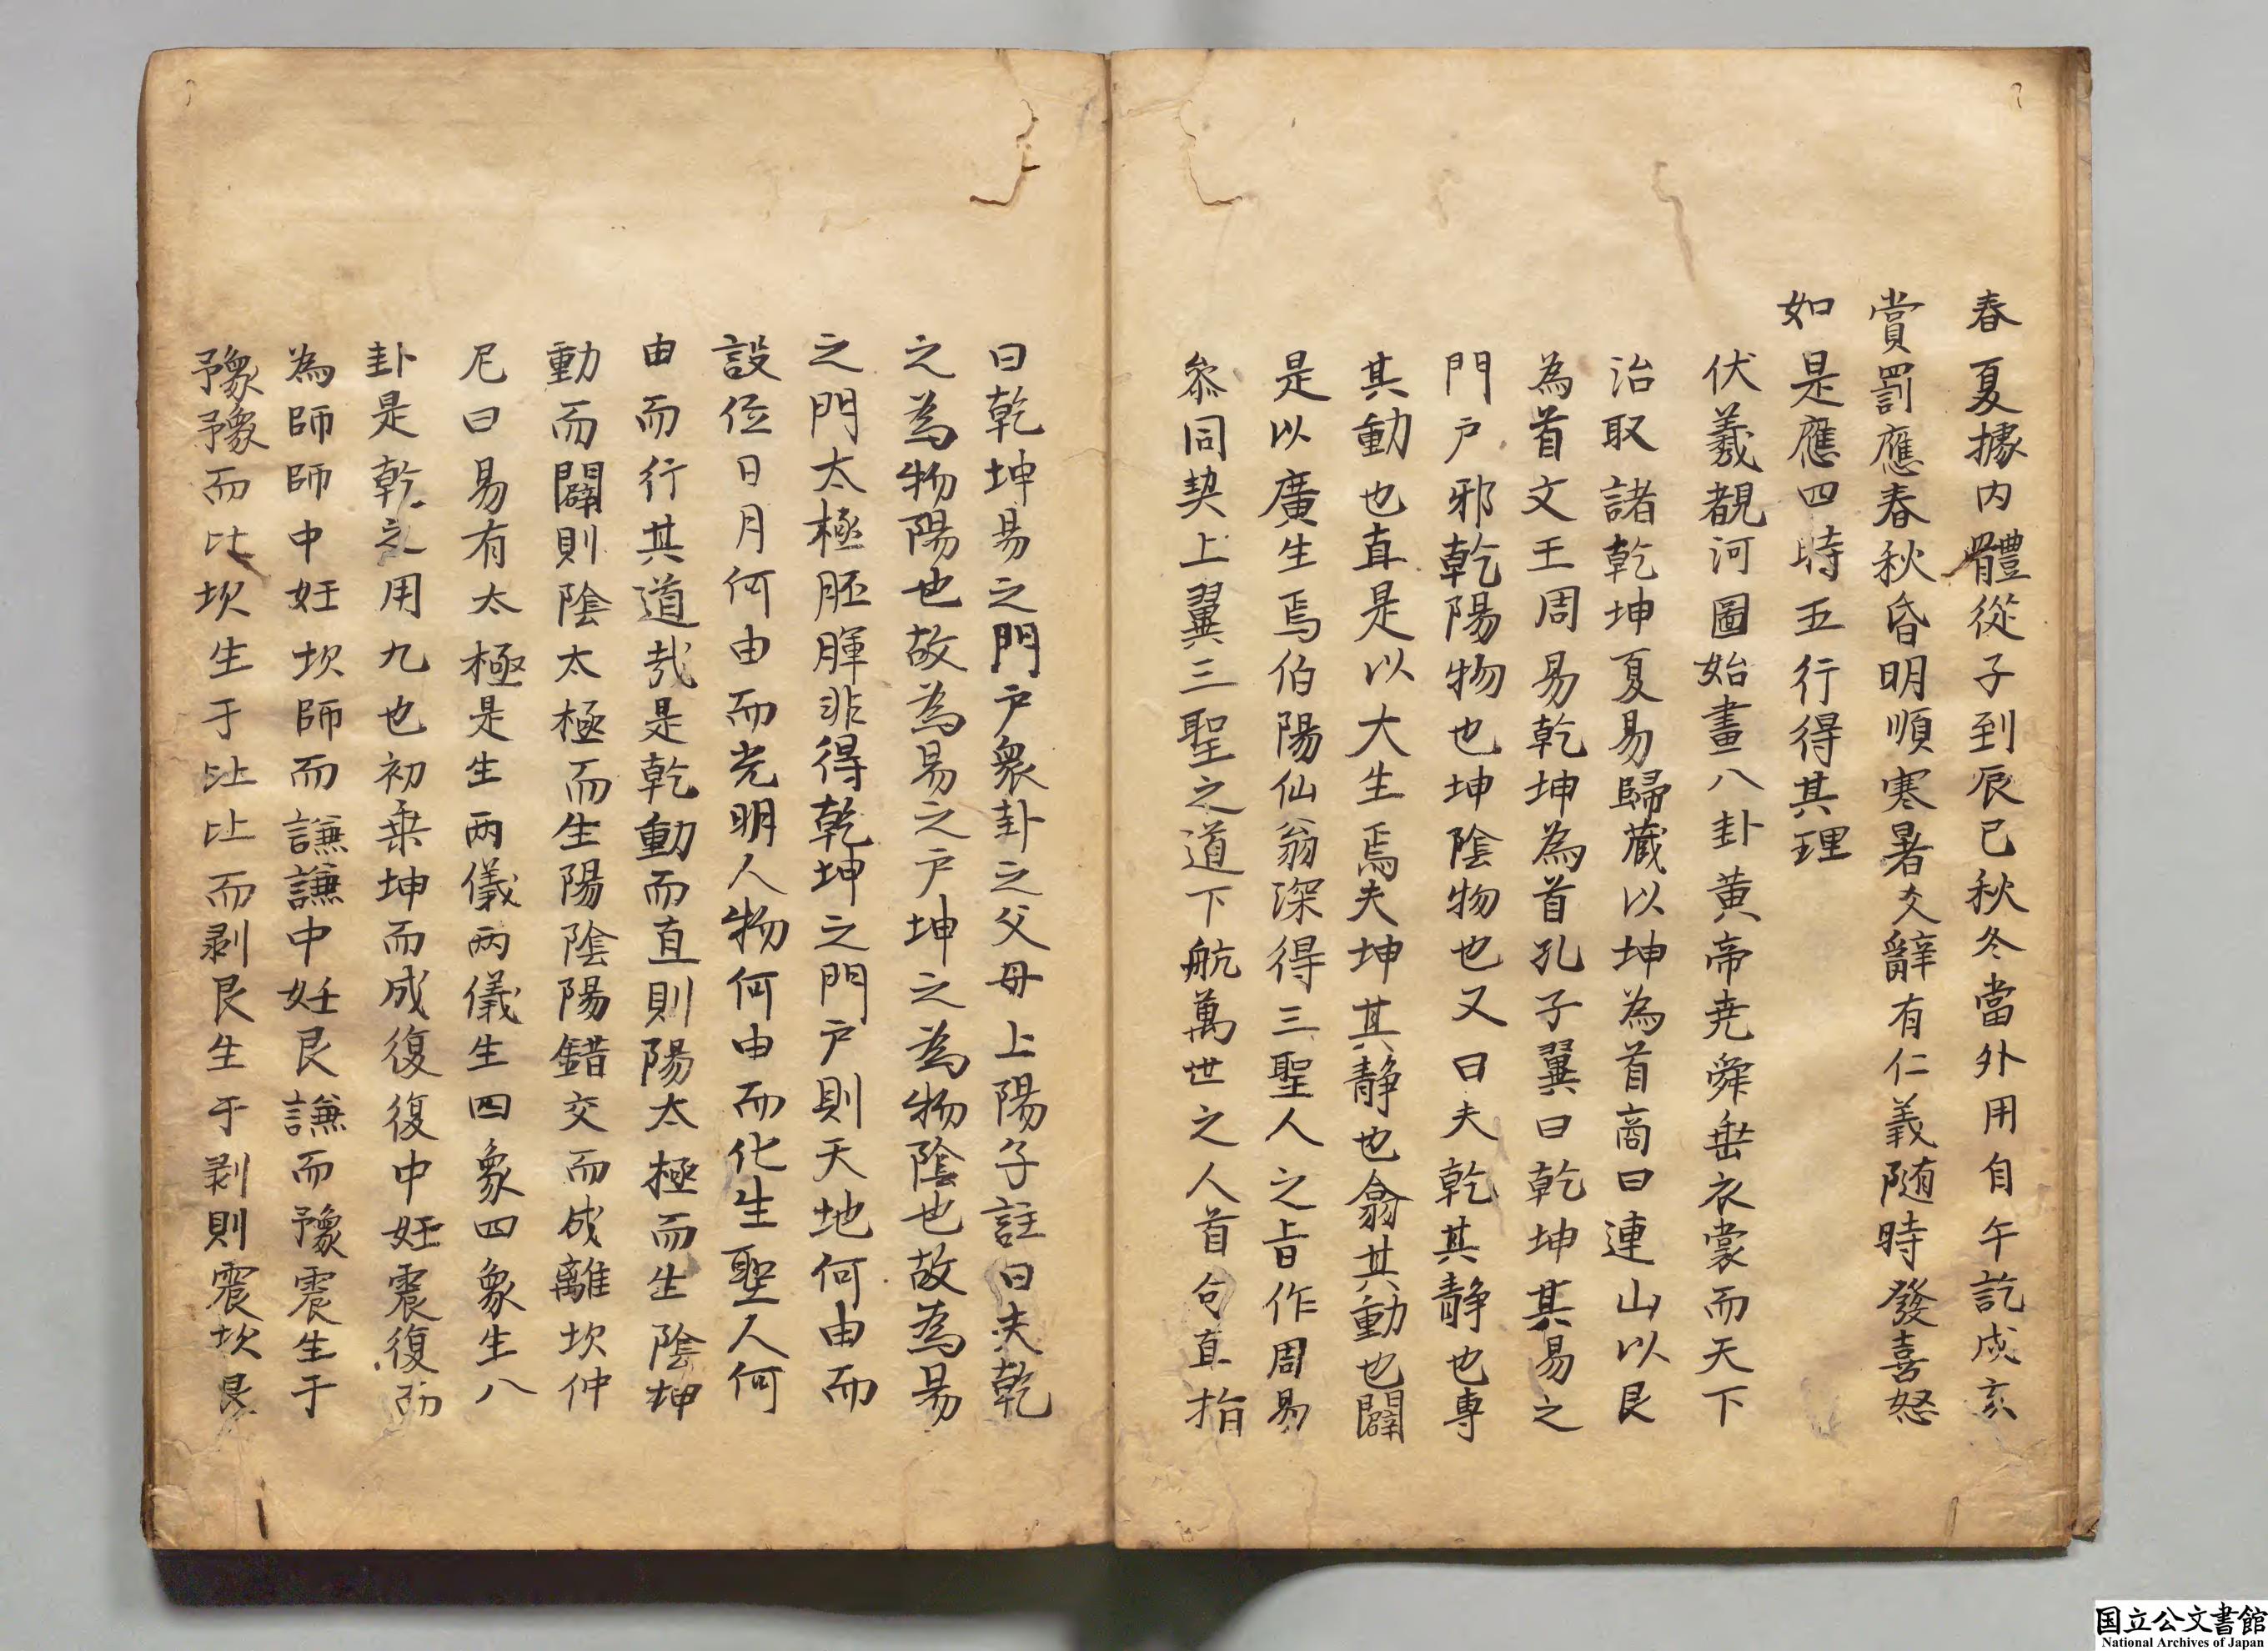 春夏據内體從子到辰巳秋冬當外用自午訖戌亥
賞罰應春秋昏明順寒暑爻辭有仁義随時發喜怒
如是應四時五行得其理
伏羲覩河圖始畫八卦黄帝尭舜垂衣裳而天下
治取諸乾坤夏易歸蔵以坤為首商曰連山以艮
為首文王周易乾坤為首孔子翼曰乾坤其易之
門戸邪乾陽物也坤陰物也又曰夫乾其静也専
其動也直是以大生焉夫坤其静也翕其動也闢
是以廣生焉伯陽仙翁深得三聖人之旨作周易
叅同契上翼三聖之道下航萬世之人首句直指
曰乾坤易之門戸衆卦之父母上陽子註曰夫乾
之為物陽也故為易之戸坤之為物陰也故為易
之門太極胚腪非得乾坤之門戸則天地何由而
設位日月何由而光明人物何由而化生聖人何
由而行其道哉是乾動而直則陽太極而生陰坤
動而闢則陰太極而生陽陰陽錯交而成離坎仲
尼曰易有太極是生两儀两儀生四象四象生八
卦是乾之用九也初乗坤而成復復中妊震復而
為師師中妊坎師而謙謙中妊艮謙而豫震生于
豫豫而比坎生于比比而剥艮生于剥則震坎艮
国立公文書館
National Archives of Japan